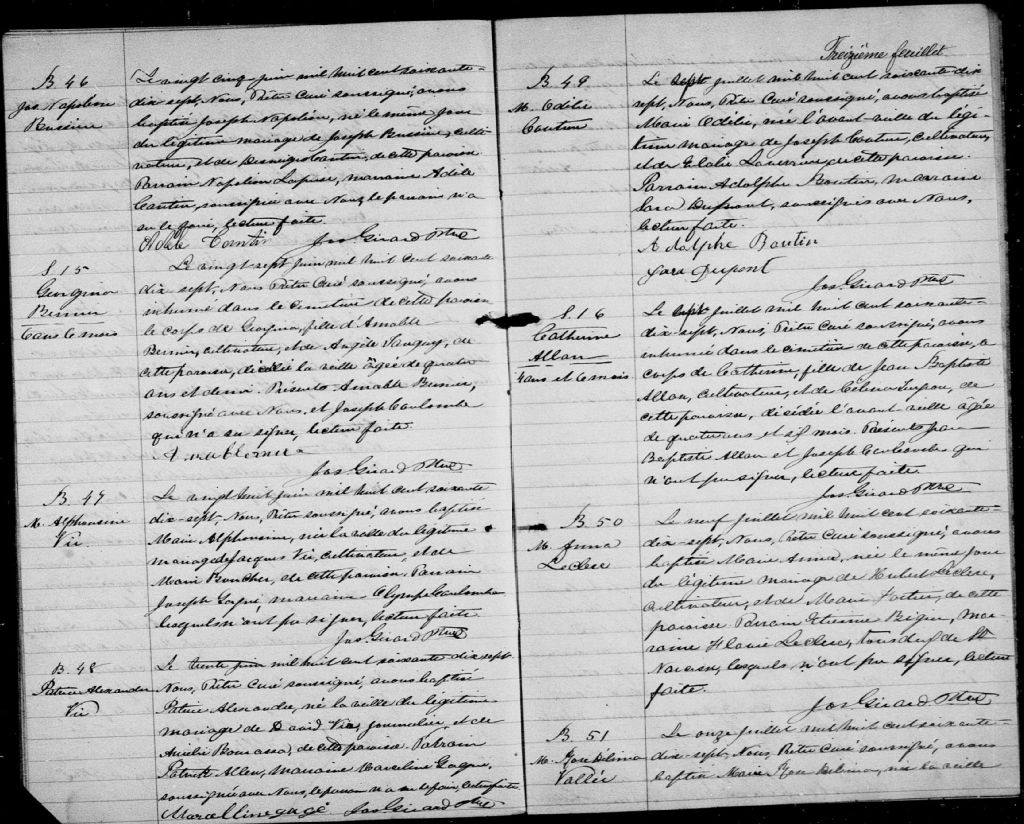 B 46
Jos Napoléon
Bussière
Le vingt cinq juin mil huit cent soixante-
dix sept, Nous, Prêtre Curé soussigné, avons
baptisé Joseph Napoléon, né le même jour
du légitime mariage de Joseph Bussière, culti-
vateur, et de de cette paroisse.
Parrain Napoléon marraine Adèle
soussignée avec Nous, le parrain n'a
su le faire, lecture faite.
Adèle Jos. Girard Ptre
S. 15
Georgina
Bernier
6 mois
Le vingt sept juin mil huit cent soixante
dix sept, Nous Prêtre Curé soussigné, avons
inhumé dans le cimetière de cette paroisse
le corps de Georgina, fille d'Amable
Bernier, cultivateur, et de Angèle de
cette paroisse, décédée la veille âgée de quatre
ans et demi. Présents Amable Bernier,
soussigné avec Nous, et Joseph Coulombe
qui n'a su signer, lecture faite.
Jos. Girard Ptre
B 47
M. Alphonsine
Vié
Le vingt huit juin mil huit cent soixante
dix-sept, Nous, Prêtre soussigné, avons baptisé
Marie Alphonsine, née la veille du légitime
mariage de Jacques Vié, cultivateur, et de
Marie Boucher, de cette paroisse. Parrain
Joseph Gagné marraine Olympe Coulombe
lesquels n'ont pu signer, lecture faite.
Jos. Girard Ptre
B. 48
Patrice Alexandre
Vié
Le trente juin mil huit cent soixante dix sept
Nous, Prêtre Curé soussigné, avons baptisé
Patrice Alexandre, né la veille du légitime
mariage de David Vié, journalier, et de
Aurélie de cette paroisse. Parrain
Patrick Allen, Marraine Marceline Gagné,
soussignée avec Nous, le parrain n'a su le faire, lecture faite.
Marcelline gagé Jos. Girard Ptre
Treizième feuillet
B 49
M. Odélie
Couture
Le sept juillet mil huit cent soixante dix
sept, Nous, Prêtre Curé soussigné, avons baptisé
Marie Odélie, née l'avant-veille du légi-
time mariage de Joseph Couture, cultivateur,
et de de cette paroisse.
Parrain Adolphe Boutin, Marraine
Sara Dupont, soussignés avec Nous,
lecture faite.
Adolphe Boutin
Sara Dupont
Jos. Girard Ptre
S. 16
Catherine
Allan
4 ans et 6 mois
Le sept juillet mil huit cent soixante-
dix-sept, Nous, Prêtre Curé soussigné, avons
inhumé dans le cimetière de cette paroisse, le
corps de Catherine, fille de Jean Baptiste
Allan, cultivateur, et de de
cette paroisse, décédée l'avant veille âgée
de quatre ans et six mois. Présents Jean
Baptiste Allan et Joseph Coulombe qui
n'ont pu signer, lecture faite.
Jos Girard Ptre
B 50
M. Anna
Leclerc
Le neuf juillet mil huit cent soixante-
dix-sept, Nous, Prêtre Curé soussigné, avons
baptisé Marie Anna, née le même jour
du légitime mariage de Hubert Leclerc,
cultivateur, et de Marie Fortier, de cette
paroisse. Parrain Etienne Bégin, mar-
raine Flavie Leclerc, tous deux de St
lesquels n'ont pu signer, lecture
faite.
Jos Girard Ptre
B. 51
M. Rose Délima
Vallée
Le onze juillet mil huit cent soixante-
dix-sept, Nous, Prêtre Curé soussigné, avons
baptisé Marie Rose Délima, née la veille